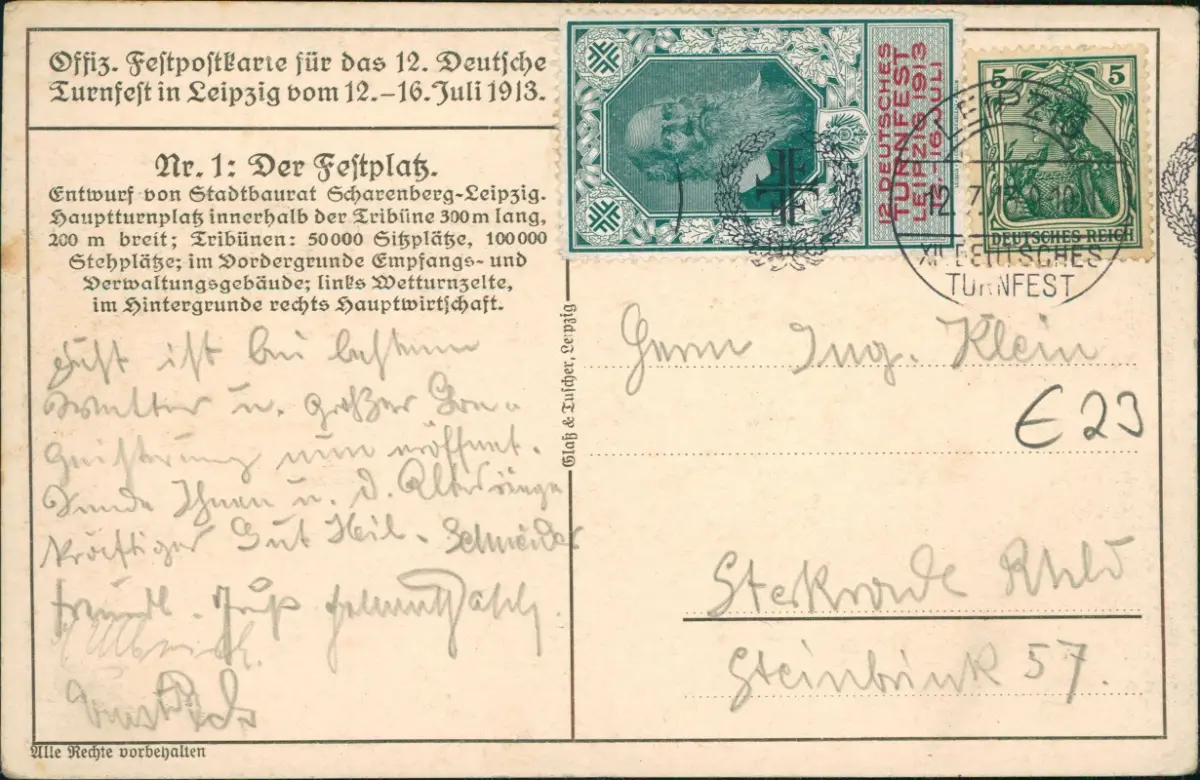 Offiz. Festpostkarte für das 12. Deutsche
Turnfest in Leipzig vom 12.–16. Juli 1913.
Nr. 1: Der Festplatz.
Entwurf von Stadtbaurat Scharenberg-Leipzig.
Hauptturnplatz innerhalb der Tribüne 300 m lang,
200 m breit; Tribünen: 50000 Sitzplätze, 100000
Stehplätze; im Vordergrunde Empfangs- und
Verwaltungsgebäude; links Wetturnzelte,
im Hintergrunde rechts Hauptwirtschaft.
ist bei bestem
Wetter u. großer Be-
geisterung nun eröffnet.
Sende Ihnen u. d.
kräftiges Gut Heil. Schneider
freundl. Gruß
Alle Rechte vorbehalten
Glaß & Tuscher, Leipzig
12. DEUTSCHES
TURNFEST
LEIPZIG 1913
12.-16. JULI
5 5
DEUTSCHES REICH
LEIPZIG
12.7.13.
XII. DEUTSCHES
TURNFEST
Herrn Ing. Klein
€23
Sterkrade Rhld
Steinbrink 57.